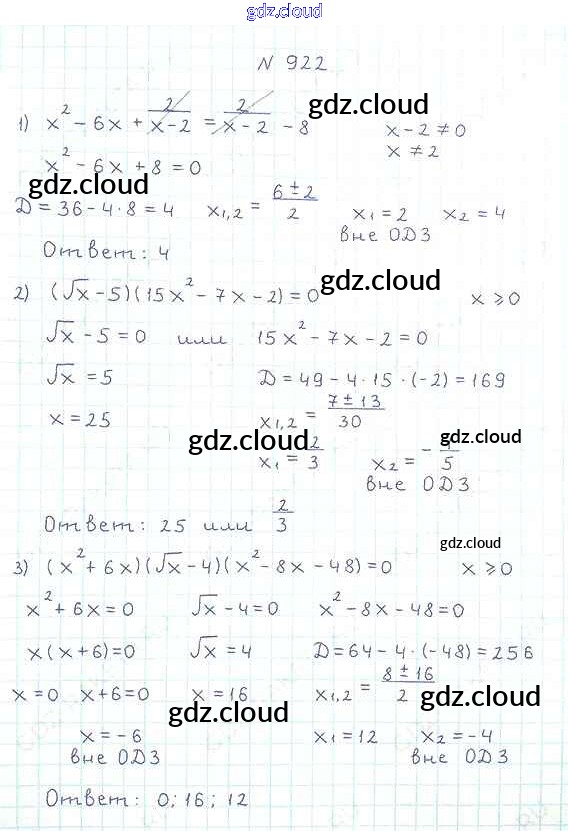 gdz.cloud
N 922
1) x² - 6x + 2/(x-2) = 2/(x-2) - 8    x - 2 ≠ 0
gdz.cloud
x² - 6x + 8 = 0    x ≠ 2
gdz.cloud
D = 36 - 4·8 = 4    x₁,₂ = (6 ± 2)/2    x₁ = 2    x₂ = 4
вне ОДЗ
Ответ: 4
gdz.cloud
2) (√x - 5)(15x² - 7x - 2) = 0    x ⩾ 0
√x - 5 = 0    или    15x² - 7x - 2 = 0
√x = 5    D = 49 - 4·15·(-2) = 169
x = 25    x₁,₂ = (7 ± 13)/30
gdz.cloud    gdz.cloud
x₁ = 2/3    x₂ = - /5
вне ОДЗ
Ответ: 25 или 2/3
gdz.cloud
3) (x² + 6x)(√x - 4)(x² - 8x - 48) = 0    x ⩾ 0
x² + 6x = 0    √x - 4 = 0    x² - 8x - 48 = 0
x(x + 6) = 0    √x = 4    D = 64 - 4·(-48) = 256
x = 0    x + 6 = 0    x = 16    x₁,₂ = (8 ± 16)/2
gdz.cloud    gdz.cloud
x = -6    x₁ = 12    x₂ = -4
вне ОДЗ    вне ОДЗ
Ответ: 0; 16; 12
gdz.cloud